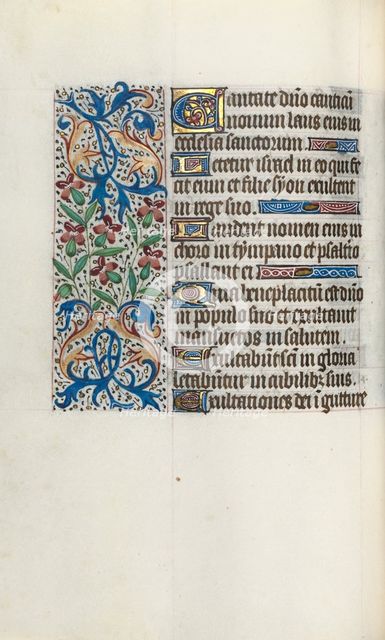 Cantate dño canticũ
novum laus eius in
ecclesia sanctorum.
Letetur israel in eo qui fe
cit eum et filie syon exultent
in rege suo.
Laudent nomen eius in
choro in tympano et psalt̓io
psallant ei.
Quia beneplacitũ est dño
in populo suo et exaltavit
mansuetos in salutem.
Exultabũt sc̃i in gloria
letabuntur in cubilib; suis.
Exultationes dei ĩ gutture
Heritage
Heritage